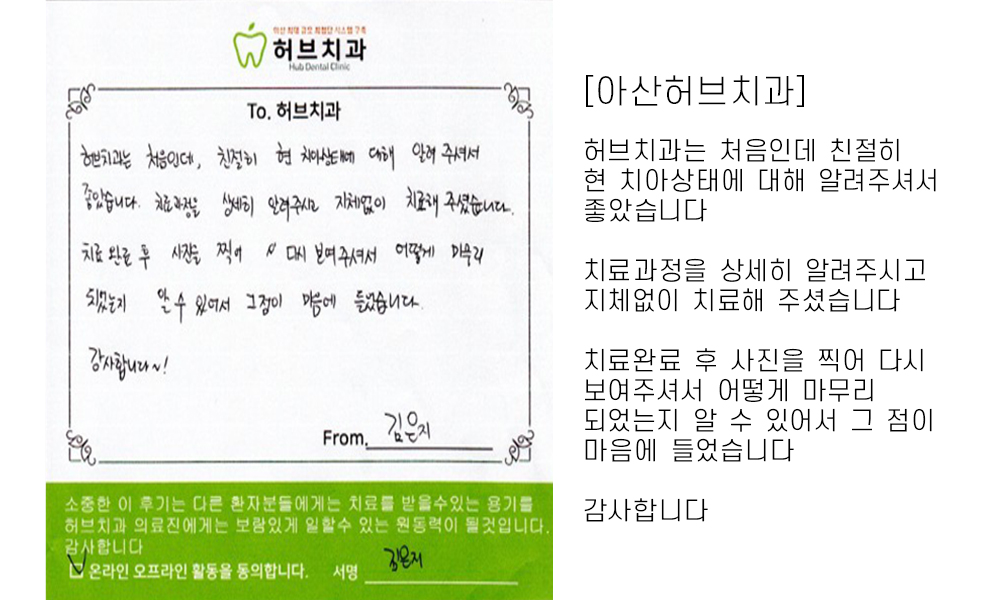 아산 최대 규모 최첨단 시스템 구축
허브치과
Hub Dental Clinic
To. 허브치과
허브치과는 처음인데, 친절히 현 치아상태에 대해 알려 주셔서
좋았습니다. 치료과정을 상세히 알려주시고 지체없이 치료해 주셨습니다.
치료 완료 후 사진을 찍어 다시 보여주셔서 어떻게 마무리
되었는지 알 수 있어서 그점이 마음에 들었습니다.
감사합니다~!
From. 김은지
소중한 이 후기는 다른 환자분들에게는 치료를 받을수있는 용기를
허브치과 의료진에게는 보람있게 일할수 있는 원동력이 될것입니다.
감사합니다
온라인 오프라인 활동을 동의합니다. 서명 김은지
[아산허브치과]
허브치과는 처음인데 친절히
현 치아상태에 대해 알려주셔서
좋았습니다
치료과정을 상세히 알려주시고
지체없이 치료해 주셨습니다
치료완료 후 사진을 찍어 다시
보여주셔서 어떻게 마무리
되었는지 알 수 있어서 그 점이
마음에 들었습니다
감사합니다